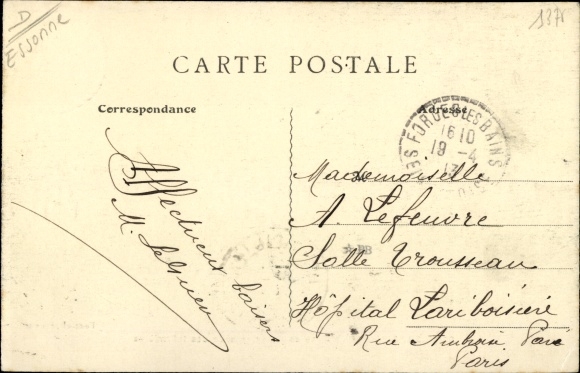 D
ESSONNE
CARTE POSTALE
Correspondance
Adresse
FORGES LES BAINS
1610
19-4
13
Affectueux baisers
Mademoiselle
A. Lefeuvre
Salle Trousseau
Hôpital Lariboisière
Rue Ambroise Paré
Paris